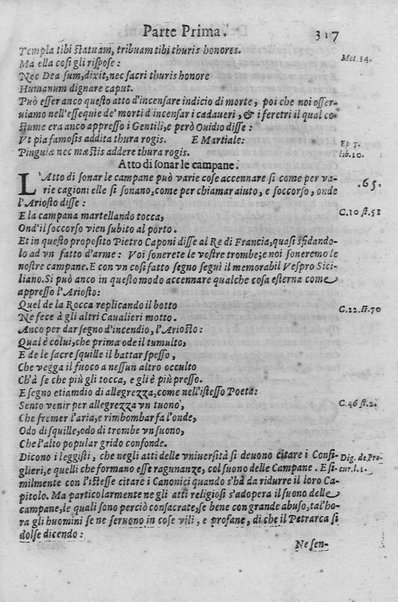 Parte Prima. 317
Templa tibi statuam, tribuam tibi thuris honores. Met. 14.
Ma ella così gli rispose:
Nec Dea sum, dixit, nec sacri thuris honore
Humanum dignare caput.
Può esser anco questo atto d'incensare indicio di morte, poi che noi osser-
uiamo nell'essequie de' morti d'incensar i cadaueri, & i feretri il qual co-
stume era anco appresso i Gentili, è però Ouidio disse:
Vt pia famosis addita thura rogis. E Martiale: Ep 7.
Pinguia nec mæstis addere thura rogis. lib.10.
Atto di sonar le campane.
L'Atto di sonar le campane può varie cose accennare si come per va- 65.
rie cagioni elle si sonano, come per chiamar aiuto, e soccorso, onde
l'Ariosto disse:
E la campana martellando tocca, C.10 st.51
Ond'il soccorso vien subito al porto.
Et in questo proposito Pietro Caponi disse al Re di Francia, quasi sfidando-
lo ad vn fatto d'arme: Voi sonerete le vostre trombe; noi soneremo le
nostre campane. E con vn cosi fatto segno seguì il memorabil Vespro Sici-
liano. Si può anco in questo modo accennare qualche cosa esterna come
appresso l'Ariosto:
Quel de la Rocca replicando il botto C. 22. st. 70
Ne fece à gli altri Cauallieri motto.
Anco per dar segno d'incendio, l'Ariosto:
Qual è colui, che prima ode il tumulto,
E de le sacre squille il battar spesso,
Che vegga il fuoco a nessun altro occulto
Ch'à se che più gli tocca, e gli è più presso.
E segno etiamdio di allegrezza, come nell'istesso Poeta:
Sento venir per allegrezza vn tuono, C. 46 st. 2.
Che fremer l'aria, e rimbombar fa l'onde,
Odo di squille, odo di trombe vn suono,
Che l'alto popular grido confonde.
Dicono i leggisti, che negli atti delle vniuersità si deuono citare i Consi- Dig. de Pro-
glieri, e quelli che formano esse ragunanze, col suono delle Campane. E si- cur. l. 1.
milmente con l'istesse citare i Canonici quando s'hà da ridurre il loro Ca-
pitolo. Ma particolarmente ne gli atti religiosi s'adopera il suono delle
campane, le quali sono perciò consacrate, se bene con grande abuso, tal'ho-
ra gli huomini se ne seruono in cose vili, e profane, di che il Petrarca si
dolse dicendo:
Ne sen-